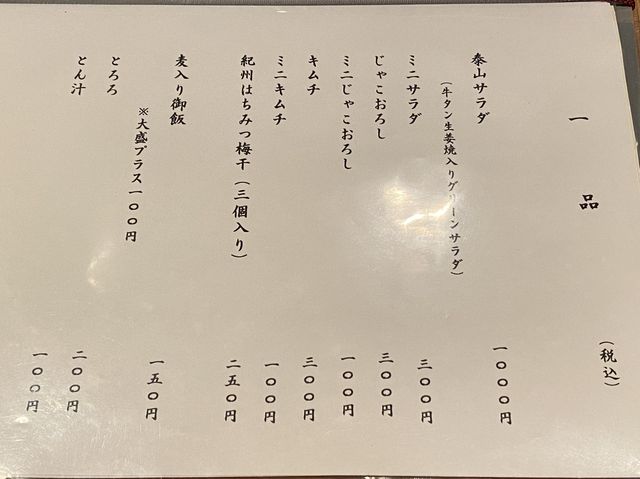 一品
(税込)
泰山サラダ 一〇〇〇円
(牛タン生姜焼入りグリーンサラダ)
ミニサラダ 三〇〇円
じゃこおろし 三〇〇円
ミニじゃこおろし 一〇〇円
キムチ 三〇〇円
ミニキムチ 一〇〇円
紀州はちみつ梅干(三個入り) 二五〇円
麦入り御飯 一五〇円
※大盛プラス一〇〇円
とろろ 二〇〇円
とん汁 一〇〇円